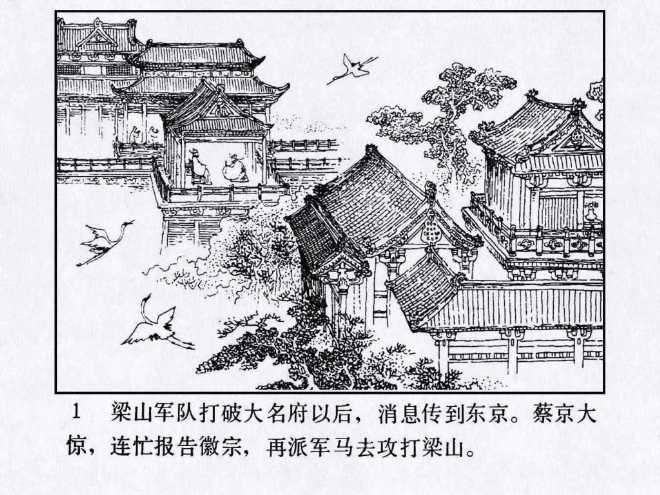 1 梁山军队打破大名府以后，消息传到东京。蔡京大
惊，连忙报告徽宗，再派军马去攻打梁山。